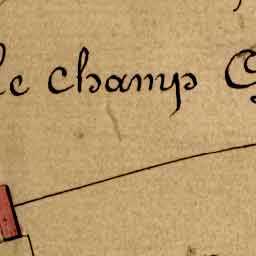 le champ